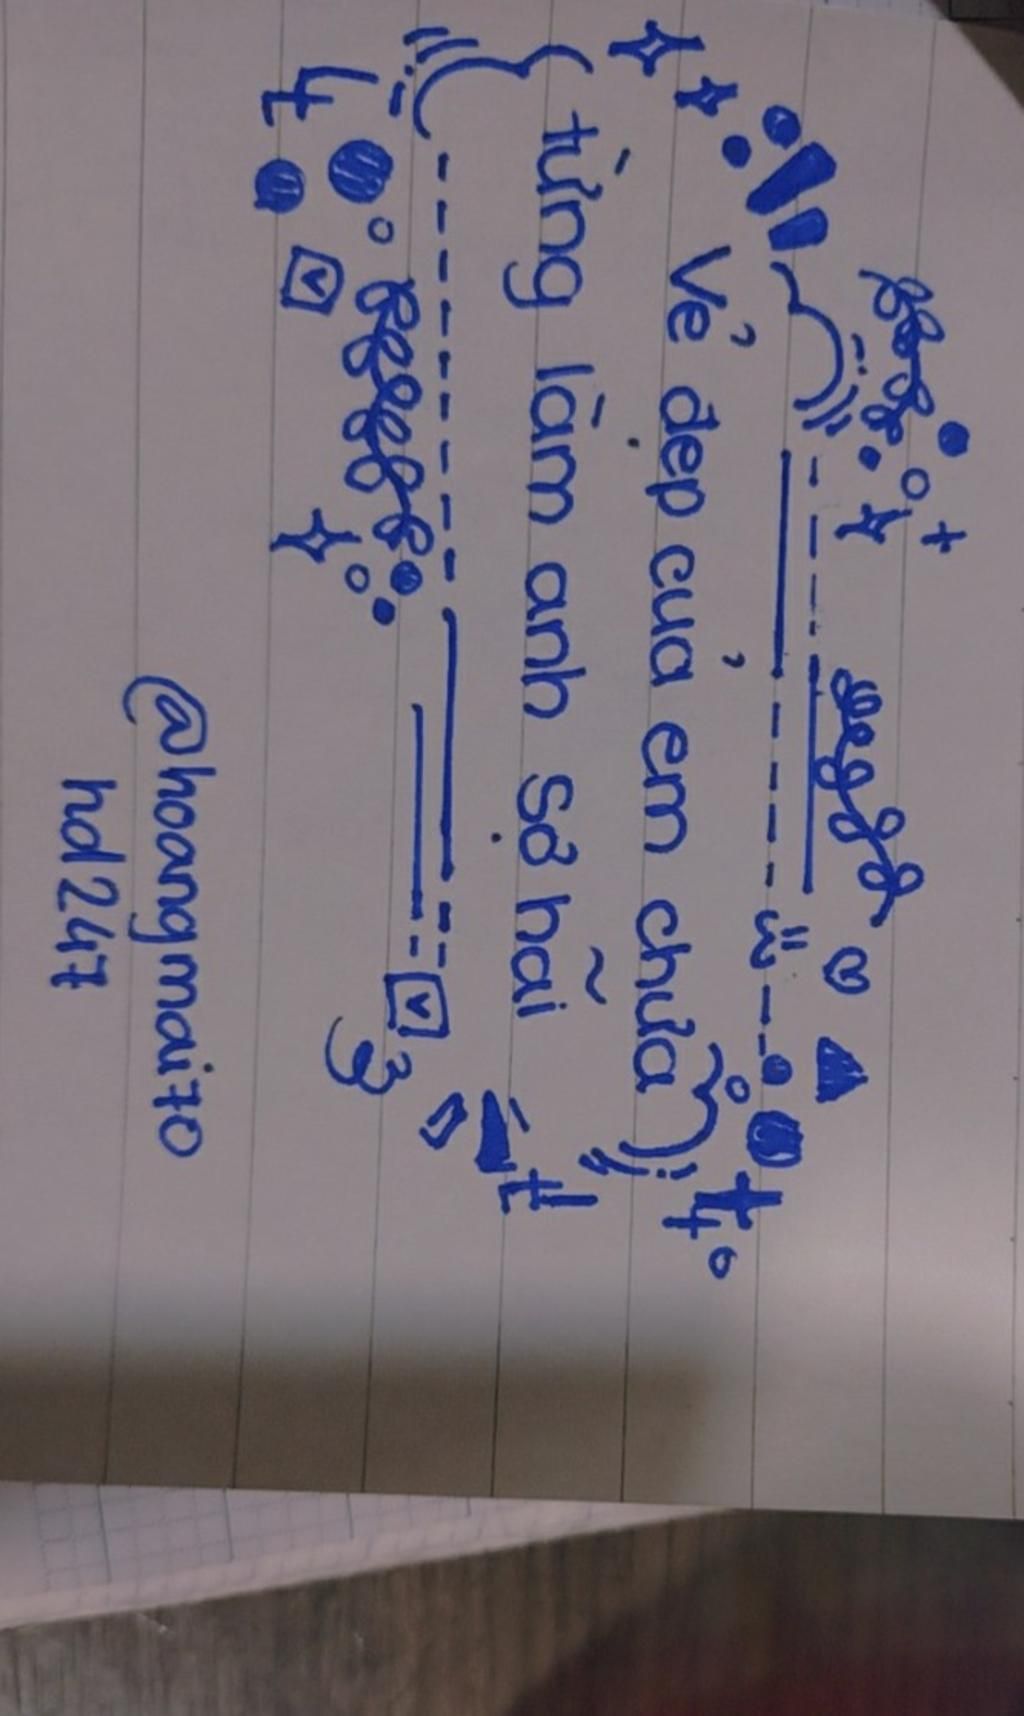 Vẻ đẹp của em chưa
từng làm anh sợ hãi
@hoangmai70
hd247